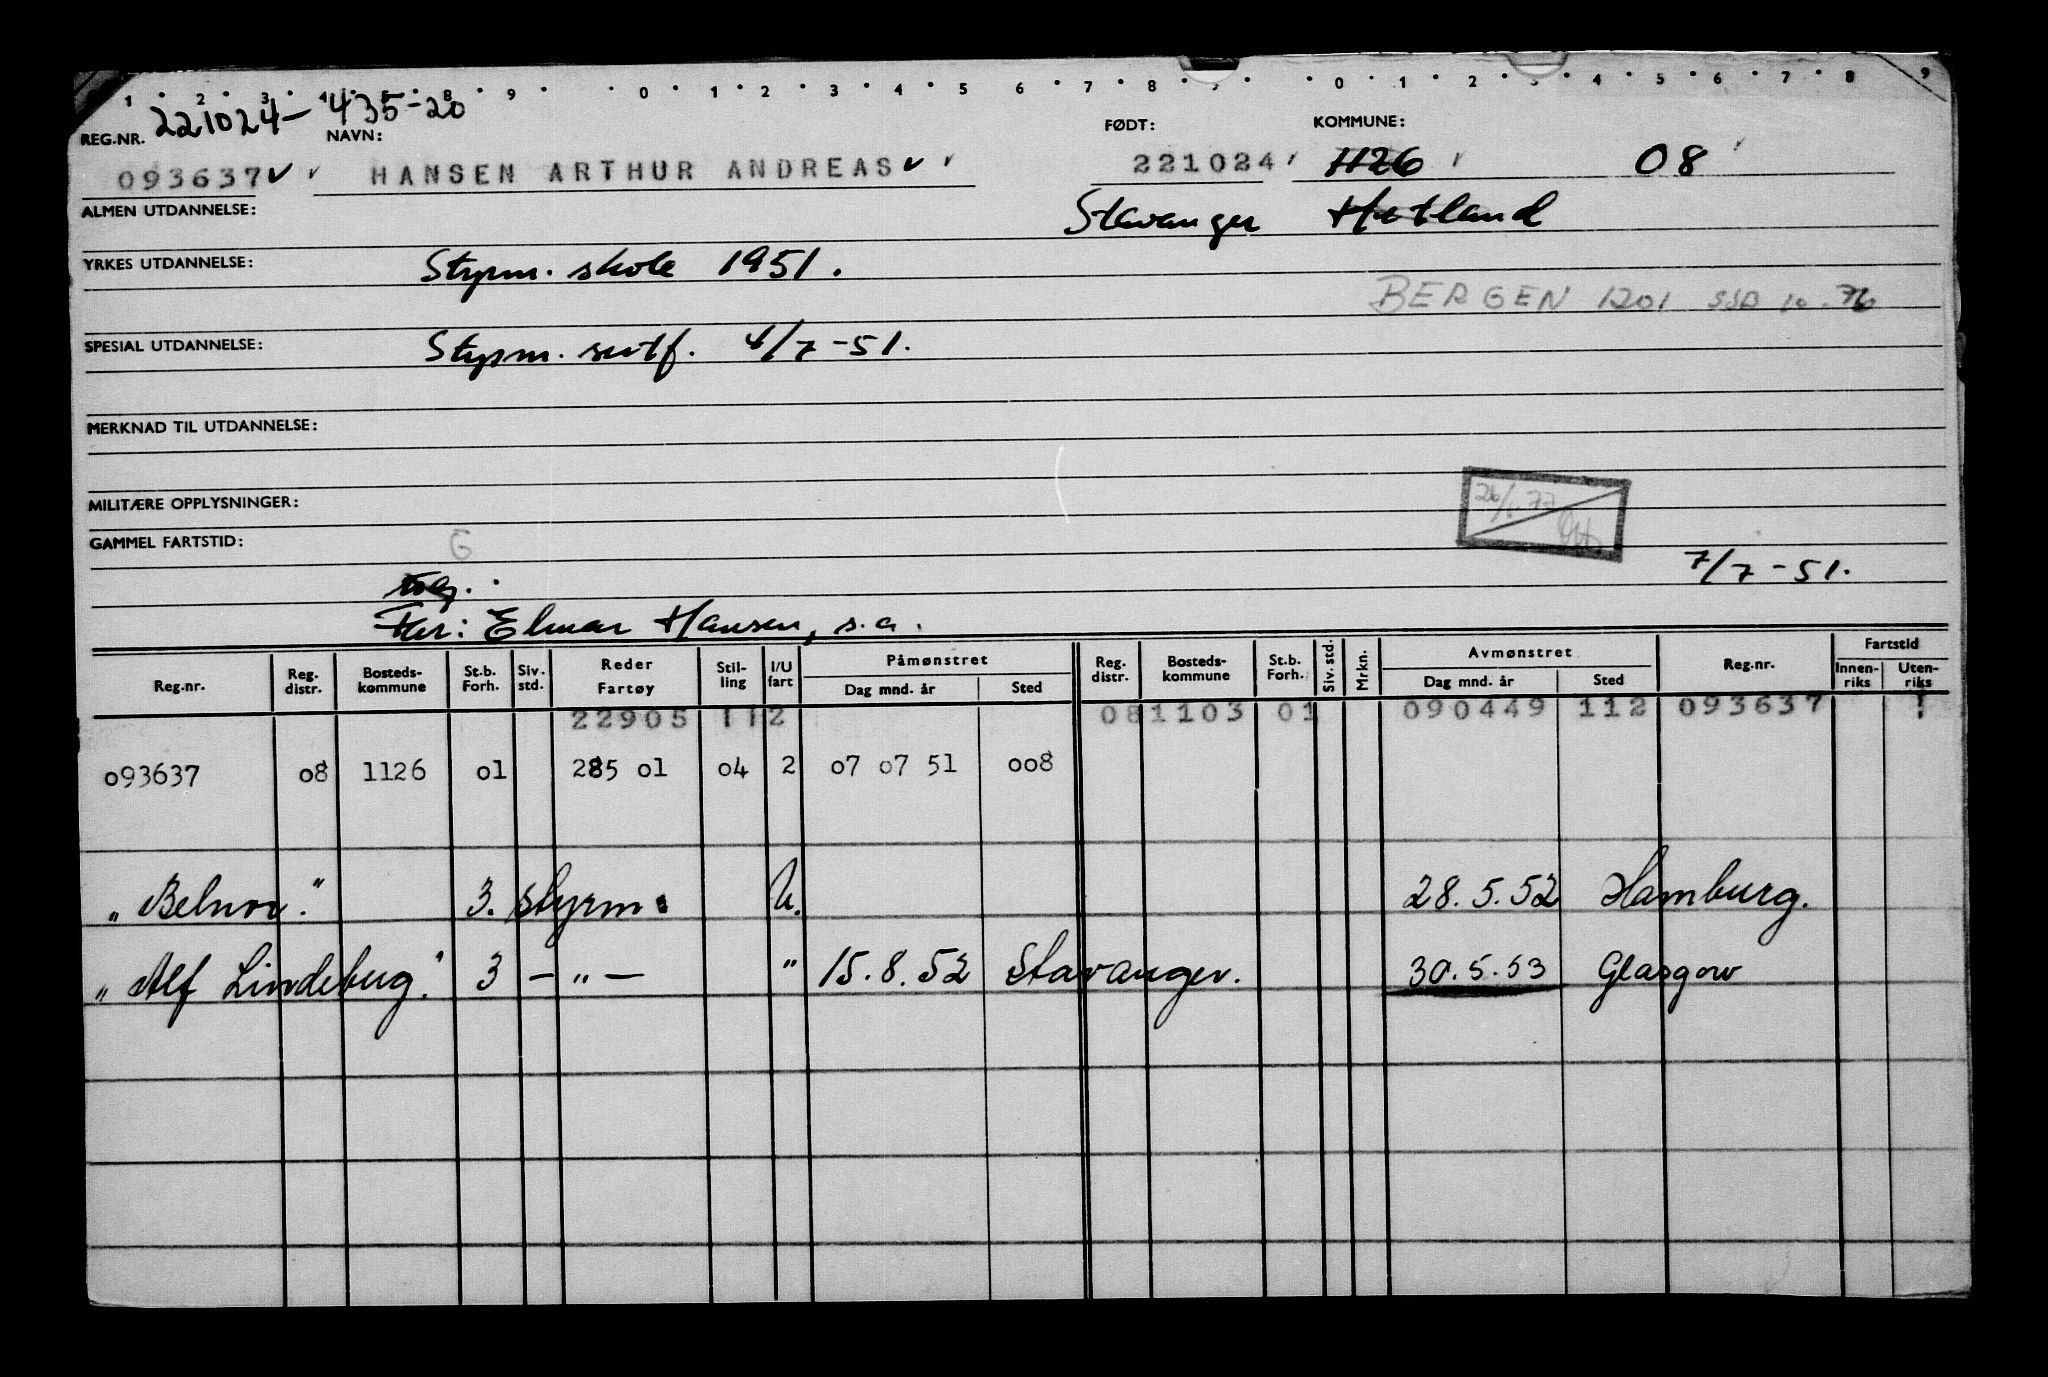 1 · 2 · 3 · 4 · 5 · 8 · 9 · · 0 · 1 · 2 · 3 · 4 · 5 6 · 7 · 8 · · · 0 · 1 · 2 · 3 · 4 · 5 · 6 · 7 · 8 · 9
REG.NR. 221024-43520
NAVN: FØDT: KOMMUNE:
093637 HANSEN ARTHUR ANDREAS 221024 1126 08
ALMEN UTDANNELSE: Stavanger Hetland
YRKES UTDANNELSE: Styrm. skole 1951.
BERGEN 1201 SSA 10.76
SPESIAL UTDANNELSE: Styrm. sertf. 4/7-51.
MERKNAD TIL UTDANNELSE:
MILITÆRE OPPLYSNINGER:
GAMMEL FARTSTID: G
7/7-51.
Far: Elmar Hansen, s.a.
Reg.nr. Reg. distr. Bosteds-kommune St.b. Forh. Siv. std. Reder Fartøy Stil-ling I/U fart Påmønstret Dag mnd. år Sted Reg. distr. Bosteds-kommune St.b. Forh. Siv. std. Mrkn. Avmønstret Dag mnd. år Sted Reg.nr. Fartstid Innen-riks Uten-riks
22905 112 081103 01 090449 112 093637
093637 08 1126 01 285 01 04 2 07 07 51 008
"Belnor." 3. styrm. U. 28.5.52 Hamburg.
"Alf Lindeberg." 3 - " - " 15.8.52 Stavanger. 30.5.53 Glasgow